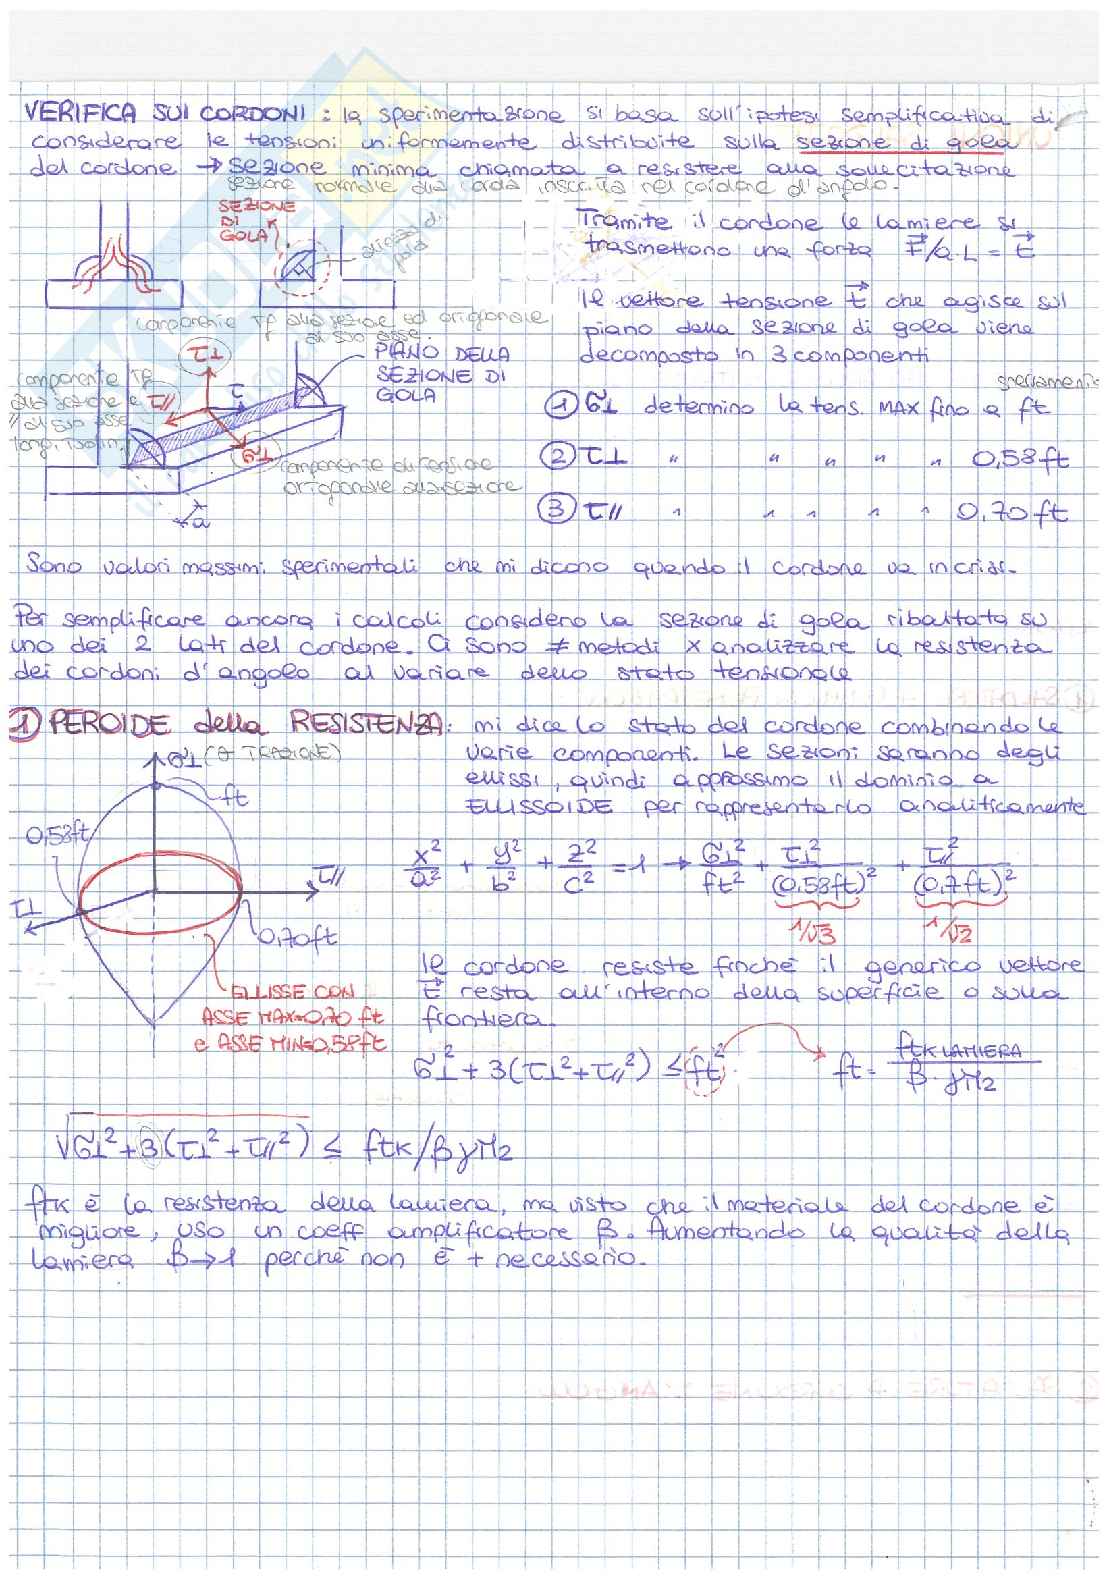 VERIFICA SUI CORDONI : la sperimentazione si basa sull'ipotesi semplificativa di
considerare le tensioni uniformemente distribuite sulla sezione di gola
del cordone → sezione minima chiamata a resistere alla sollecitazione
sezione normale alla corda inscritta nel cordone d'angolo.
SEZIONE
DI
GOLA
altezza di
gola
Tramite il cordone le lamiere si
trasmettono una forza F/a·L = t
Il vettore tensione t che agisce sul
piano della sezione di gola viene
decomposto in 3 componenti
componente Tg alla sezione ed ortogonale
al suo asse.
τ⊥
PIANO DELLA
SEZIONE DI
GOLA
componente Tg
alla sezione e
// al suo asse
τ//
τ
σ⊥
componente di tensione
ortogonale alla sezione
a
sperimentalmente
① σ⊥ determino la tens. MAX fino a ft
② τ⊥ " " " " " 0,58ft
③ τ// " " " " " 0,70ft
Sono valori massimi sperimentali che mi dicono quando il cordone va in crisi.
Per semplificare ancora i calcoli considero la sezione di gola ribaltata su
uno dei 2 lati del cordone. Ci sono ≠ metodi x analizzare la resistenza
dei cordoni d'angolo al variare dello stato tensionale
1) PEROIDE della RESISTENZA: mi dice lo stato del cordone combinando le
varie componenti. Le sezioni saranno degli
ellissi, quindi approssimo il dominio a
ELLISSOIDE per rappresentarlo analiticamente
σ⊥ (σ TRAZIONE)
ft
0,58ft
τ//
τ⊥
0,70ft
ELLISSE CON
ASSE MAX=0,70 ft
e ASSE MIN=0,58ft
x²/a² + y²/b² + z²/c² = 1 → σ⊥²/ft² + τ⊥²/(0,58ft)² + τ//²/(0,7ft)²
1/√3 1/√2
Il cordone resiste finché il generico vettore
t resta all'interno della superficie o sulla
frontiera.
σ⊥² + 3(τ⊥²+τ//²) ≤ ft² ft = ftk LAMIERA / β·γM2
√σ⊥²+3(τ⊥²+τ//²) ≤ ftk/βγM2
ftk è la resistenza della lamiera, ma visto che il materiale del cordone è
migliore, uso un coeff amplificatore β. Aumentando la qualità della
lamiera β→1 perché non è + necessario.